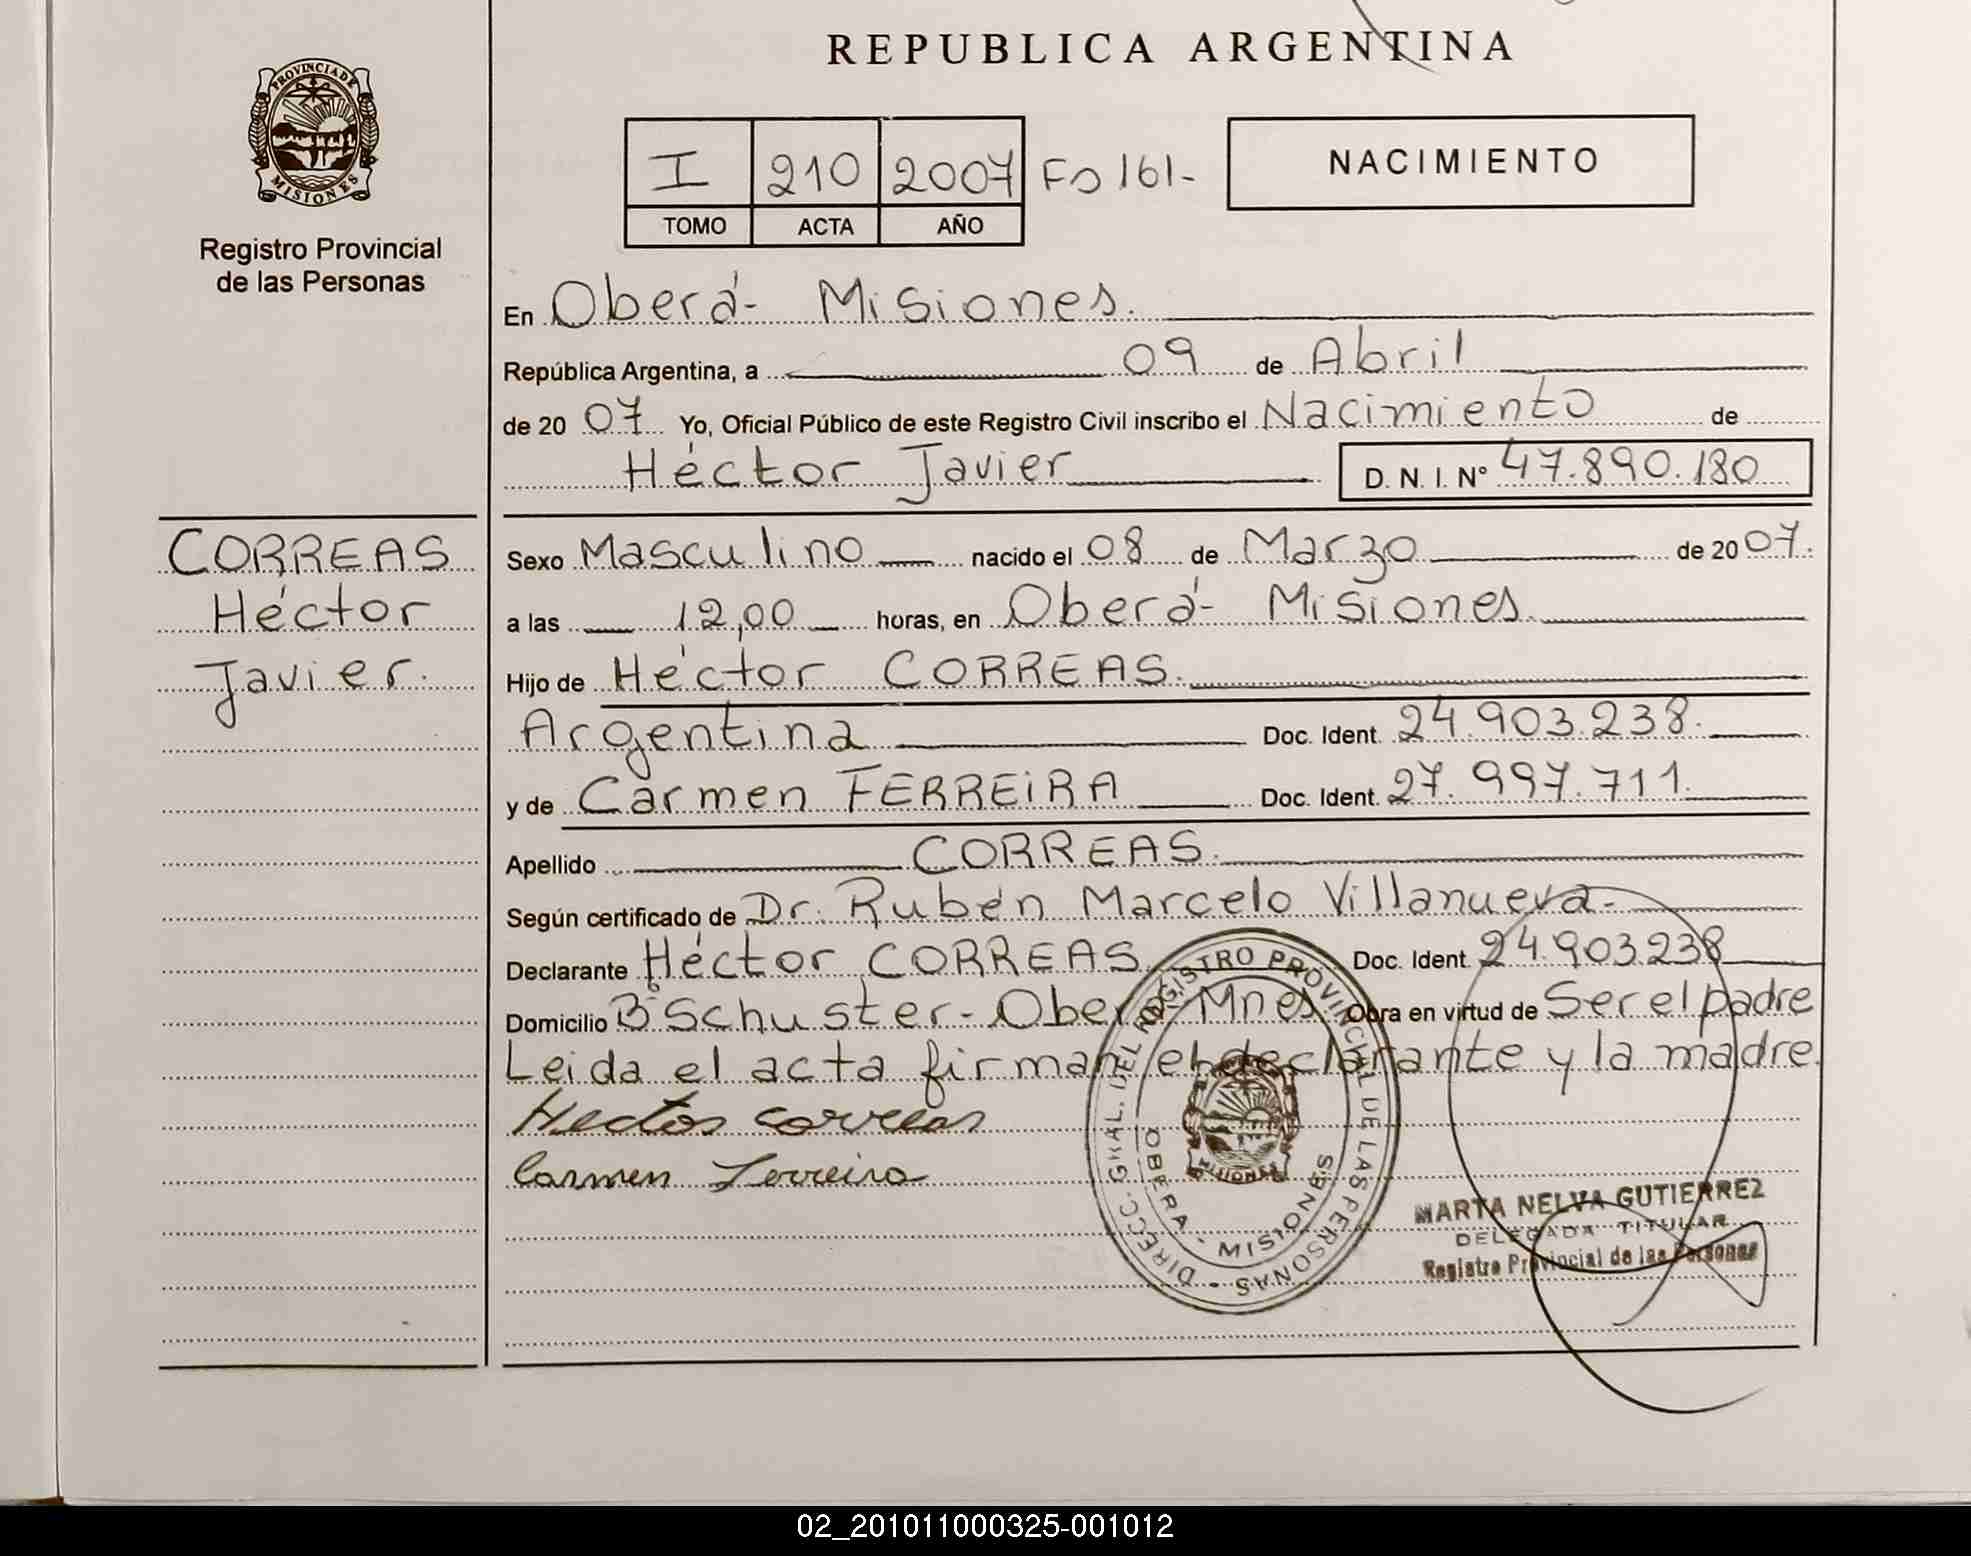 REPUBLICA ARGENTINA
PROVINCIA DE
MISIONES
Registro Provincial
de las Personas
I 210 2007 Fo 161-
TOMO ACTA AÑO
NACIMIENTO
En Oberá- Misiones.
República Argentina, a 09 de Abril
de 2007 Yo, Oficial Público de este Registro Civil inscribo el Nacimiento de
Héctor Javier D. N. I. Nº 47.890.180
CORREAS
Héctor
Javier.
Sexo Masculino nacido el 08 de Marzo de 2007.
a las 12,00 horas, en Oberá- Misiones.
Hijo de Héctor CORREAS.
Argentina Doc. Ident. 24.903.238.
y de Carmen FERREIRA Doc. Ident. 27.997.711.
Apellido CORREAS.
Según certificado de Dr. Rubén Marcelo Villanueva-
Declarante Héctor CORREAS Doc. Ident. 24.903.238
Domicilio Bº Schuster- Oberá- Mnes. Obra en virtud de Ser el padre
Leida el acta firman el declarante y la madre.
Hector correas
Carmen Ferreira
DIRECC. GRAL. DEL REGISTRO PROVINCIAL DE LAS PERSONAS
OBERA - MISIONES
MISIONES
MARTA NELVA GUTIERREZ
DELEGADA TITULAR
Registro Provincial de las Personas
02_201011000325-001012